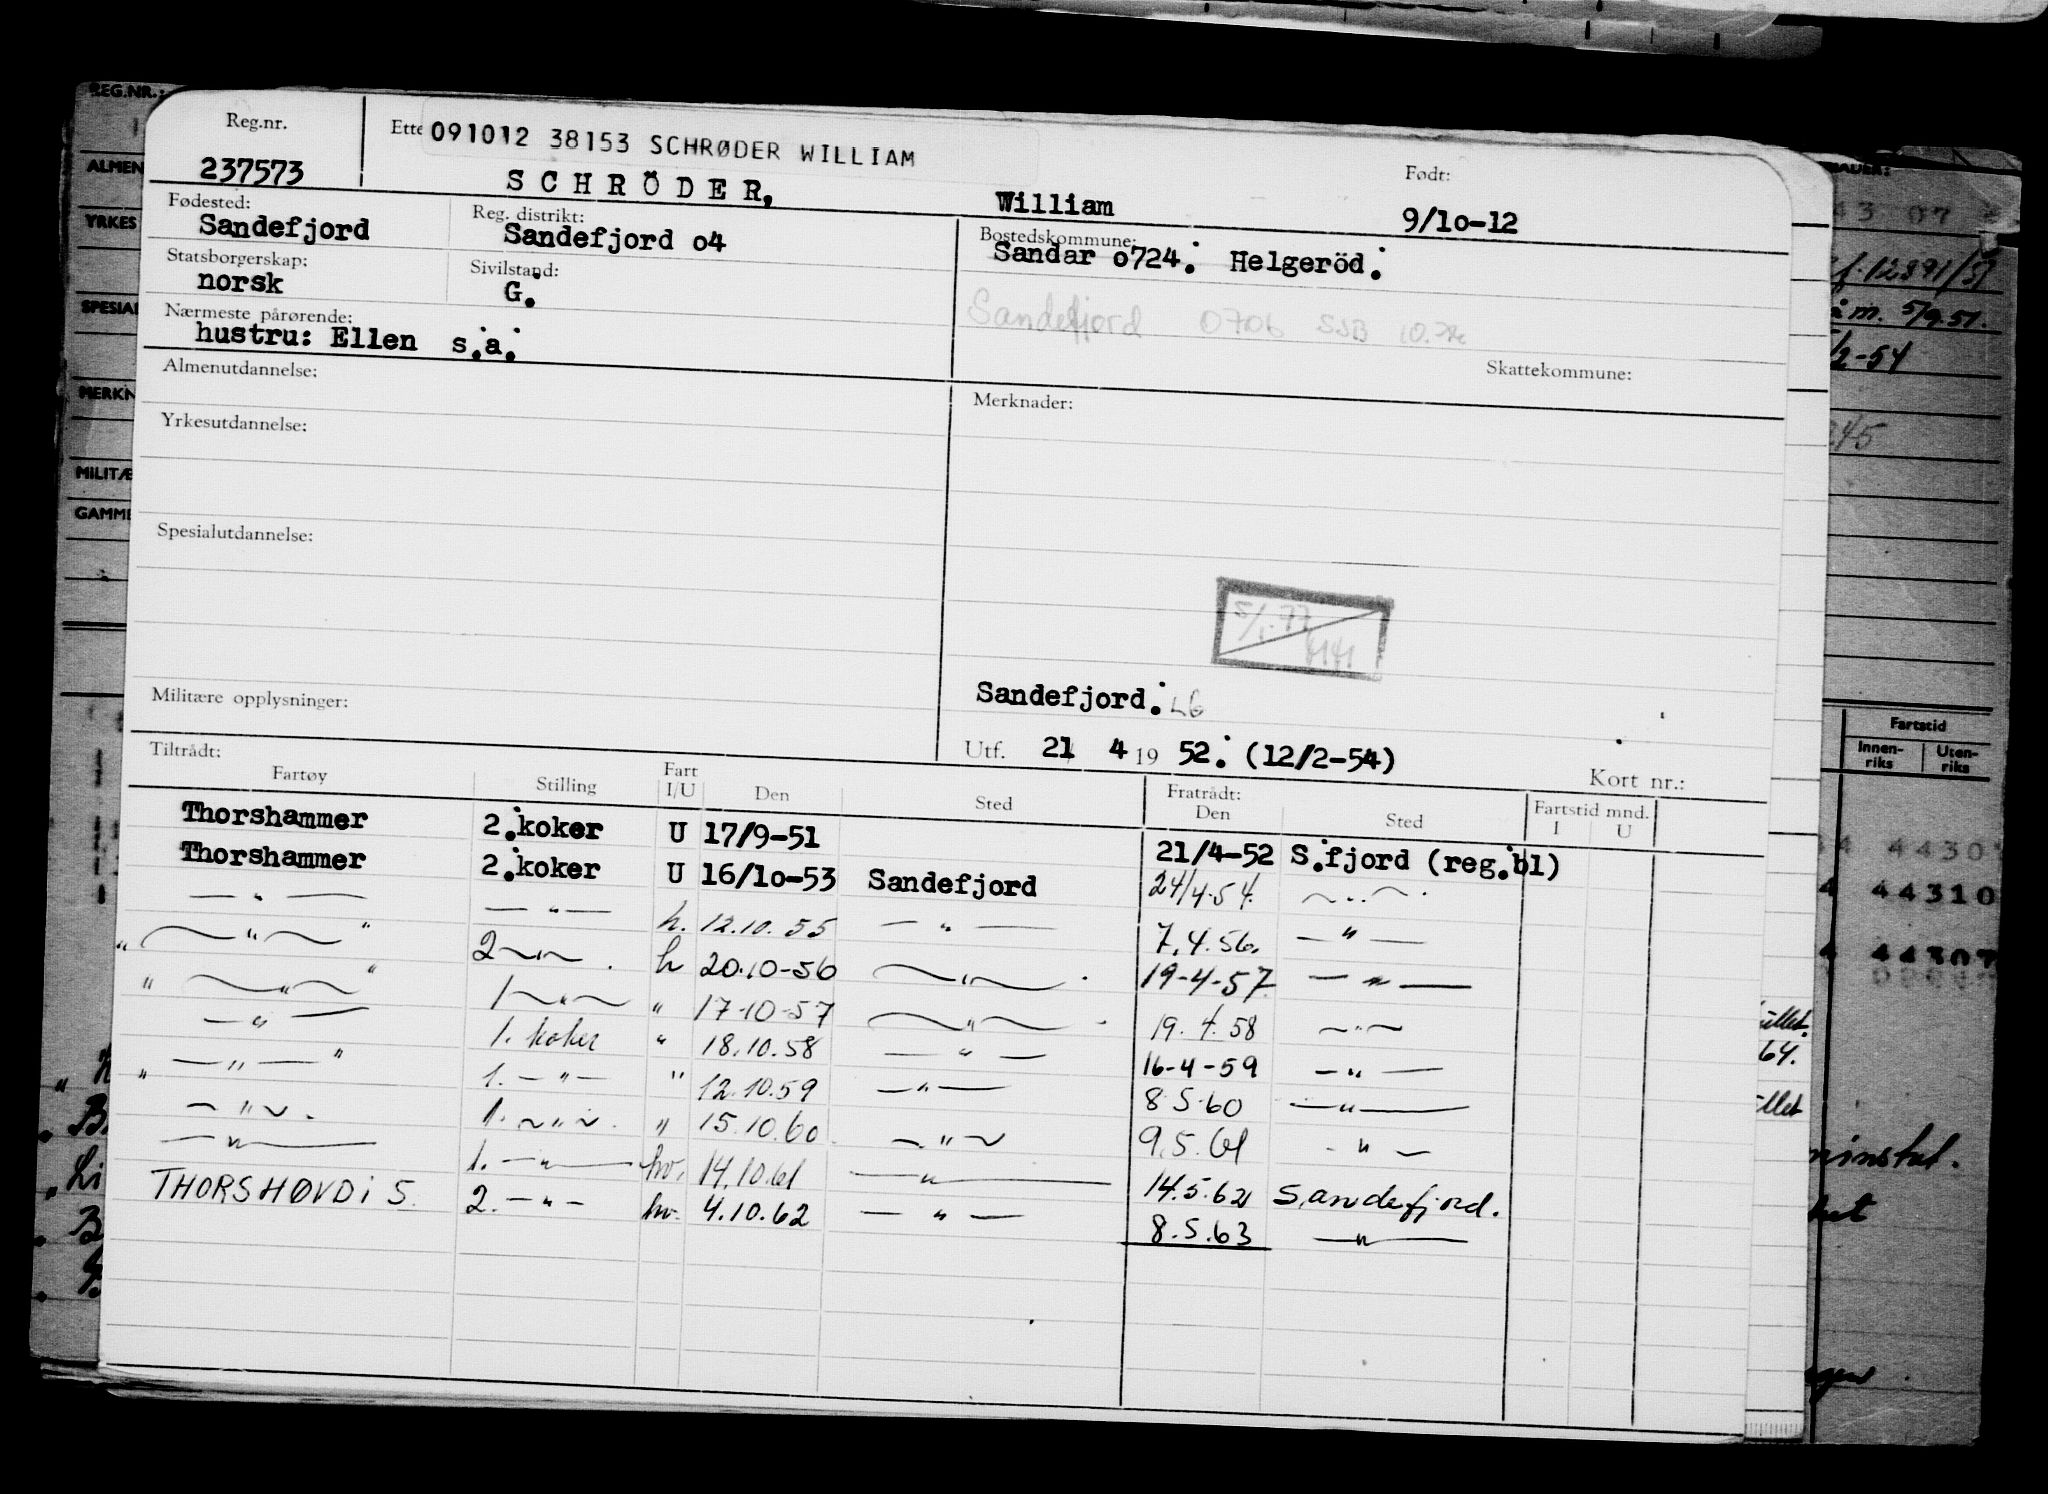 Reg.nr.
237573
Ette
091012 38153 SCHRØDER WILLIAM
SCHRÖDER, William
Født:
9/1o-12
Fødested:
Sandefjord
Reg. distrikt:
Sandefjord o4
Bostedskommune:
Sandar o724. Helgeröd.
Statsborgerskap:
norsk
Sivilstand:
G.
Sandefjord 0706 SSB
Nærmeste pårørende:
hustru: Ellen s.a.
Skattekommune:
Almenutdannelse:
Merknader:
Yrkesutdannelse:
Spesialutdannelse:
5/1.77
Militære opplysninger:
Sandefjord.
Utf. 21 4 19 52. (12/2-54)
Kort nr.:
Tiltrådt:
Fratrådt:
Fartøy Stilling Fart I/U Den Sted Den Sted Fartstid mnd. I U
Thorshammer 2.koker U 17/9-51 21/4-52 S.fjord (reg.bl)
Thorshammer 2.koker U 16/1o-53 Sandefjord 24/4-54. — " —
— " — — " — h. 12.10.55 — " — 7.4.56. — " —
" — " — " 2 — " — h 20.10-56 — " — 19-4-57 — " —
" — " — " 1 — " — " 17-10-57 — " — 19.4.58 — " —
— " — 1. koker " 18.10.58 — " — 16-4-59 — " —
" — " — " 1. — " — " 12.10.59 — " — 8.5.60 — " —
— " — 1. — " — " 15.10.60 — " — 9.5.61 — " —
— " — 1. — " — hv. 14.10.61 — " — 14.5.62 Sandefjord.
THORSHØVDI 5 2. — " — hv. 4.10.62 — " — 8.5.63 — " —
REG.NR.:
ALMEN
YRKES
SPESIAL
MERKN
MILITÆ
GAMME
43 07
12891/51
m. 5/9.51.
/2-54
245
Fartstid
Innen-riks
Uten-riks
44310
64.